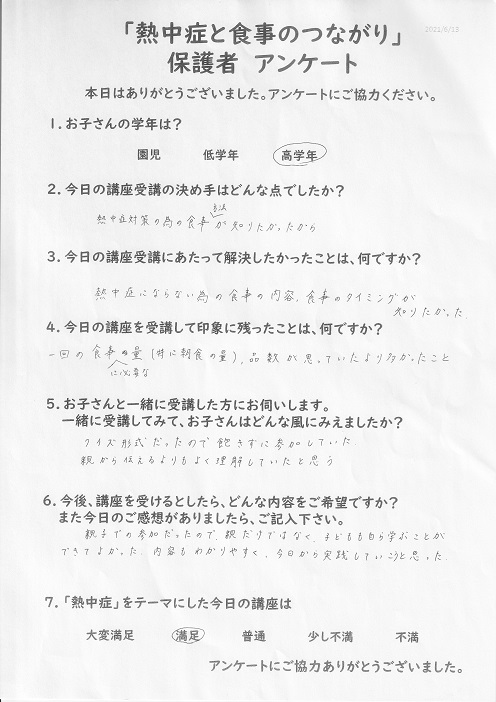 2021/6/13
「熱中症と食事のつながり」
保護者 アンケート
本日はありがとうございました。アンケートにご協力ください。
1.お子さんの学年は?
園児 低学年 高学年
2.今日の講座受講の決め手はどんな点でしたか?
熱中症対策の為の食事方法が知りたかったから
3.今日の講座受講にあたって解決したかったことは、何ですか?
熱中症にならない為の食事の内容、食事のタイミングが
知りたかった
4.今日の講座を受講して印象に残ったことは、何ですか?
一回の食事に必要な量(特に朝食の量)、品数が思っていたより多かったこと
5.お子さんと一緒に受講した方にお伺いします。
一緒に受講してみて、お子さんはどんな風にみえましたか?
クイズ形式だったので飽きずに参加していた
親から伝えるよりもよく理解していたと思う
6.今後、講座を受けるとしたら、どんな内容をご希望ですか?
また今日のご感想がありましたら、ご記入下さい。
親子での参加だったので、親だけではなく、子どもも自ら学ぶことが
できてよかった。内容もわかりやすく、今日から実践していこうと思った。
7.「熱中症」をテーマにした今日の講座は
大変満足 満足 普通 少し不満 不満
アンケートにご協力ありがとうございました。